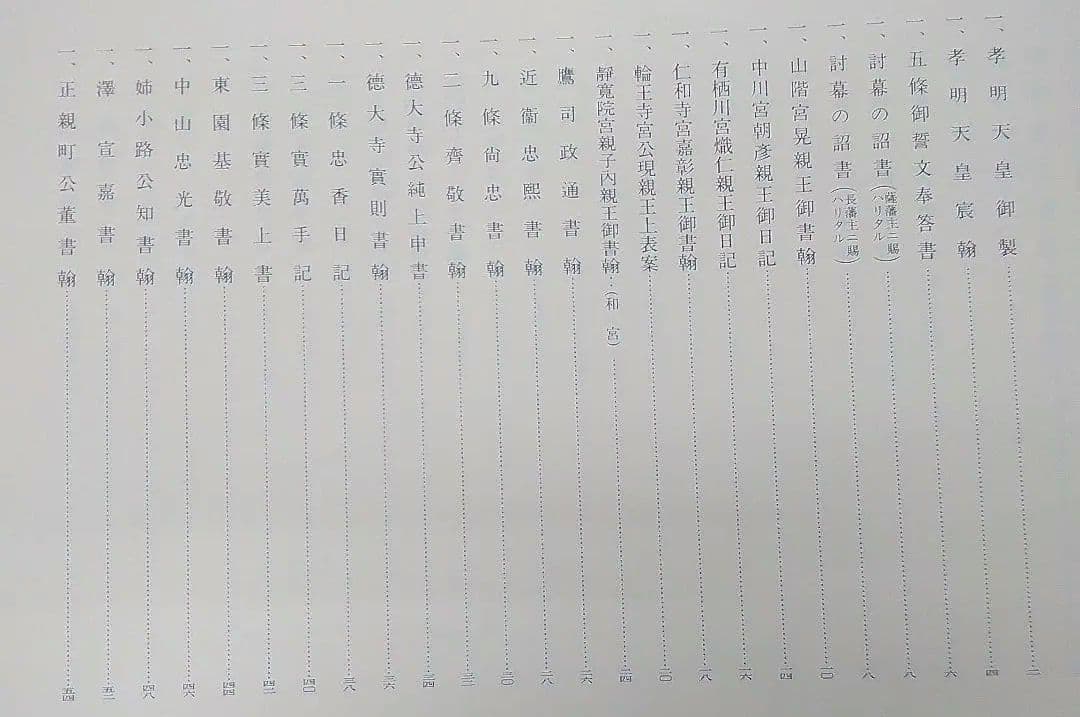 一、孝明天皇御製…二
一、孝明天皇宸翰…四
一、五條御誓文奉答書…六
一、討幕の詔書（薩藩主ニ賜ハリタル）…八
一、討幕の詔書（長藩主ニ賜ハリタル）…八
一、山階宮晃親王御書翰…一〇
一、中川宮朝彥親王御日記…一四
一、有栖川宮熾仁親王御日記…一六
一、仁和寺宮嘉彰親王御書翰…一八
一、輪王寺宮公現親王上表案…二〇
一、靜寬院宮親子內親王御書翰（和宮）…二四
一、鷹司政通書翰…二六
一、近衞忠熙書翰…二八
一、九條尙忠書翰…三〇
一、二條齊敬書翰…三二
一、德大寺公純上申書…三四
一、德大寺實則書翰…三六
一、一條忠香日記…三八
一、三條實萬手記…四〇
一、三條實美上書…四二
一、東園基敬書翰…四四
一、中山忠光書翰…四六
一、姉小路公知書翰…四八
一、澤宣嘉書翰…五二
一、正親町公董書翰…五四